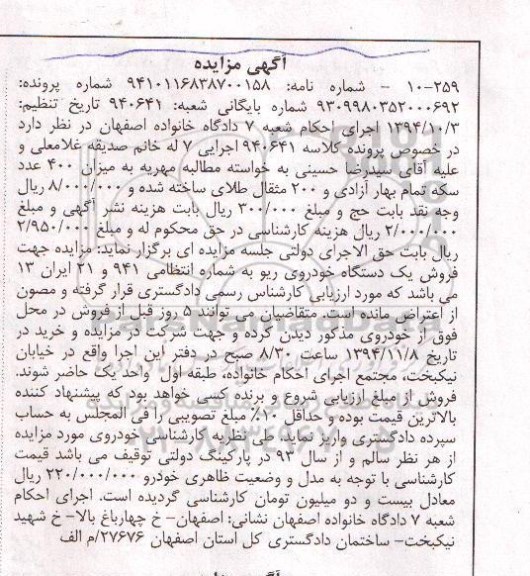 آگهی مزایده
۱۰-۲۵۹ - شماره نامه: ۹۴۱۰۱۱۶۸۳۸۷۰۰۱۵۸ شماره پرونده:
۹۳۰۹۹۸۰۳۵۲۰۰۰۶۹۲ شماره بایگانی شعبه: ۹۴۰۶۴۱ تاریخ تنظیم:
۱۳۹۴/۱۰/۳ اجرای احکام شعبه ۷ دادگاه خانواده اصفهان در نظر دارد
در خصوص پرونده کلاسه ۹۴۰۶۴۱ اجرایی ۷ له خانم صدیقه غلامعلی و
علیه آقای سیدرضا حسینی به خواسته مطالبه مهریه به میزان ۴۰۰ عدد
سکه تمام بهار آزادی و ۲۰۰ مثقال طلای ساخته شده و ۸/۰۰۰/۰۰۰ ریال
وجه نقد بابت حج و مبلغ ۳۰۰/۰۰۰ ریال بابت هزینه نشر آگهی و مبلغ
۲/۰۰۰/۰۰۰ ریال هزینه کارشناسی در حق محکوم له و مبلغ ۲/۹۵۰/۰۰۰
ریال بابت حق الاجرای دولتی جلسه مزایده ای برگزار نماید: مزایده جهت
فروش یک دستگاه خودروی ریو به شماره انتظامی ۹۴۱ و ۲۱ ایران ۱۳
می باشد که مورد ارزیابی کارشناس رسمی دادگستری قرار گرفته و مصون
از اعتراض مانده است. متقاضیان می توانند ۵ روز قبل از فروش در محل
فوق از خودروی مذکور دیدن کرده و جهت شرکت در مزایده و خرید در
تاریخ ۱۳۹۴/۱۱/۸ ساعت ۸/۳۰ صبح در دفتر این اجرا واقع در خیابان
نیکبخت، مجتمع اجرای احکام خانواده، طبقه اول واحد یک حاضر شوند.
فروش از مبلغ ارزیابی شروع و برنده کسی خواهد بود که پیشنهاد کننده
بالاترین قیمت بوده و حداقل ۱۰٪ مبلغ تصویبی را فی المجلس به حساب
سپرده دادگستری واریز نماید. طی نظریه کارشناسی خودروی مورد مزایده
از هر نظر سالم و از سال ۹۳ در پارکینگ دولتی توقیف می باشد قیمت
کارشناسی با توجه به مدل و وضعیت ظاهری خودرو ۲۲۰/۰۰۰/۰۰۰ ریال
معادل بیست و دو میلیون تومان کارشناسی گردیده است. اجرای احکام
شعبه ۷ دادگاه خانواده اصفهان نشانی: اصفهان- خ چهارباغ بالا- خ شهید
نیکبخت- ساختمان دادگستری کل استان اصفهان ۲۷۶۷۶/م الف